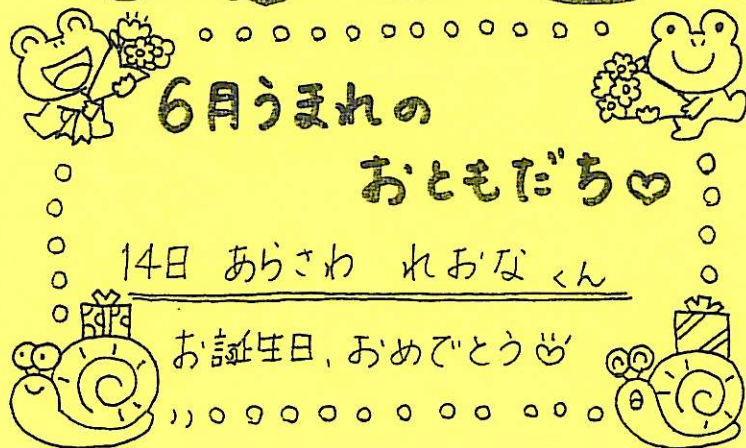 6月うまれの
おともだち♡
14日 あらさわ れおな くん
お誕生日、おめでとう